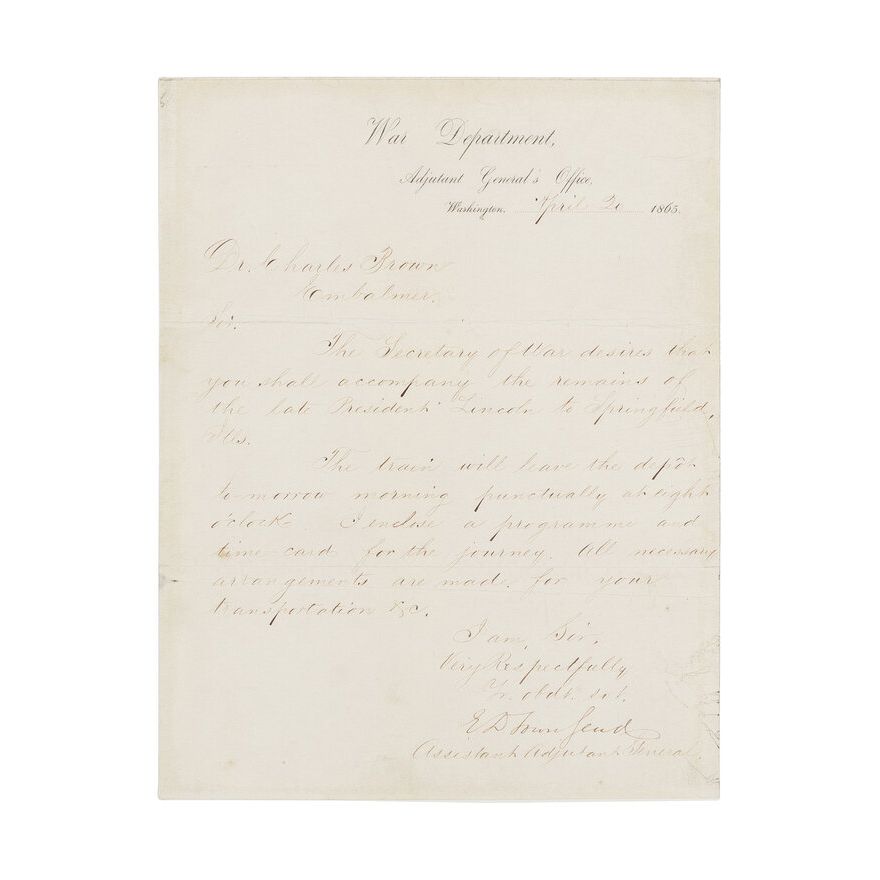 War Department,
Adjutant General's Office,
Washington, April 20 1865.
Dr. Charles Brown
Embalmer.
Sir.
The Secretary of War desires that
you shall accompany the remains of
the late President Lincoln to Springfield,
Ills.
The train will leave the depôt
to-morrow morning punctually at eight
o'clock. I enclose a programme and
time card for the journey. All necessary
arrangements are made for your
transportation &c.
I am, Sir,
Very Respectfully
Yr. obdt. svt.
E D Townsend
Assistant Adjutant General.